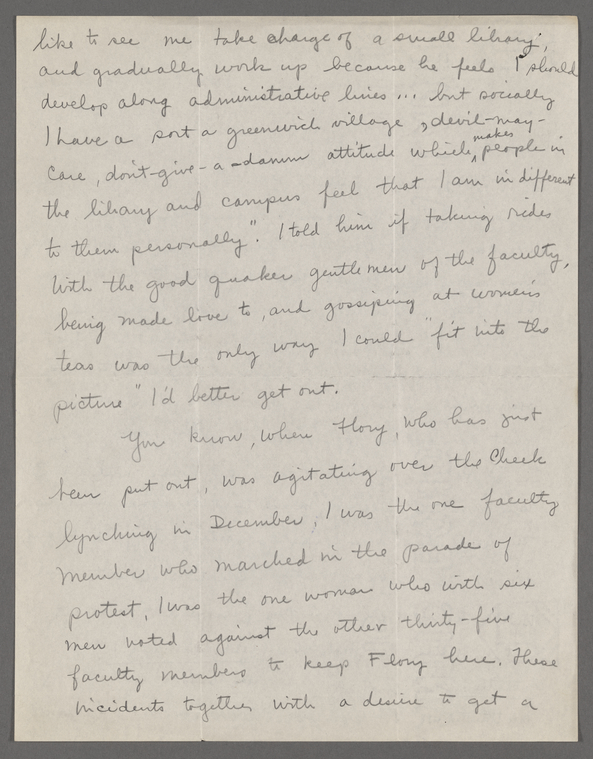 like to see me take charge of a small library,
and gradually work up because he feels I should
develop along administrative lines ... but socially
I have a sort a greenwich village, devil-may-
care, don't-give-a-damm attitude which makes people in
the library and campus feel that I am indifferent
to them personally". I told him if taking rides
with the good quaker gentlemen of the faculty,
being made love to, and gossiping at women's
teas was the only way I could "fit into the
picture" I'd better get out.
You know, when Flory, who has just
been put out, was agitating over the Cheek
lynching in December, I was the one faculty
member who marched in the parade of
protest, I was the one woman who with six
men voted against the other thirty-five
faculty members to keep Flory here. These
incidents together with a desire to get a